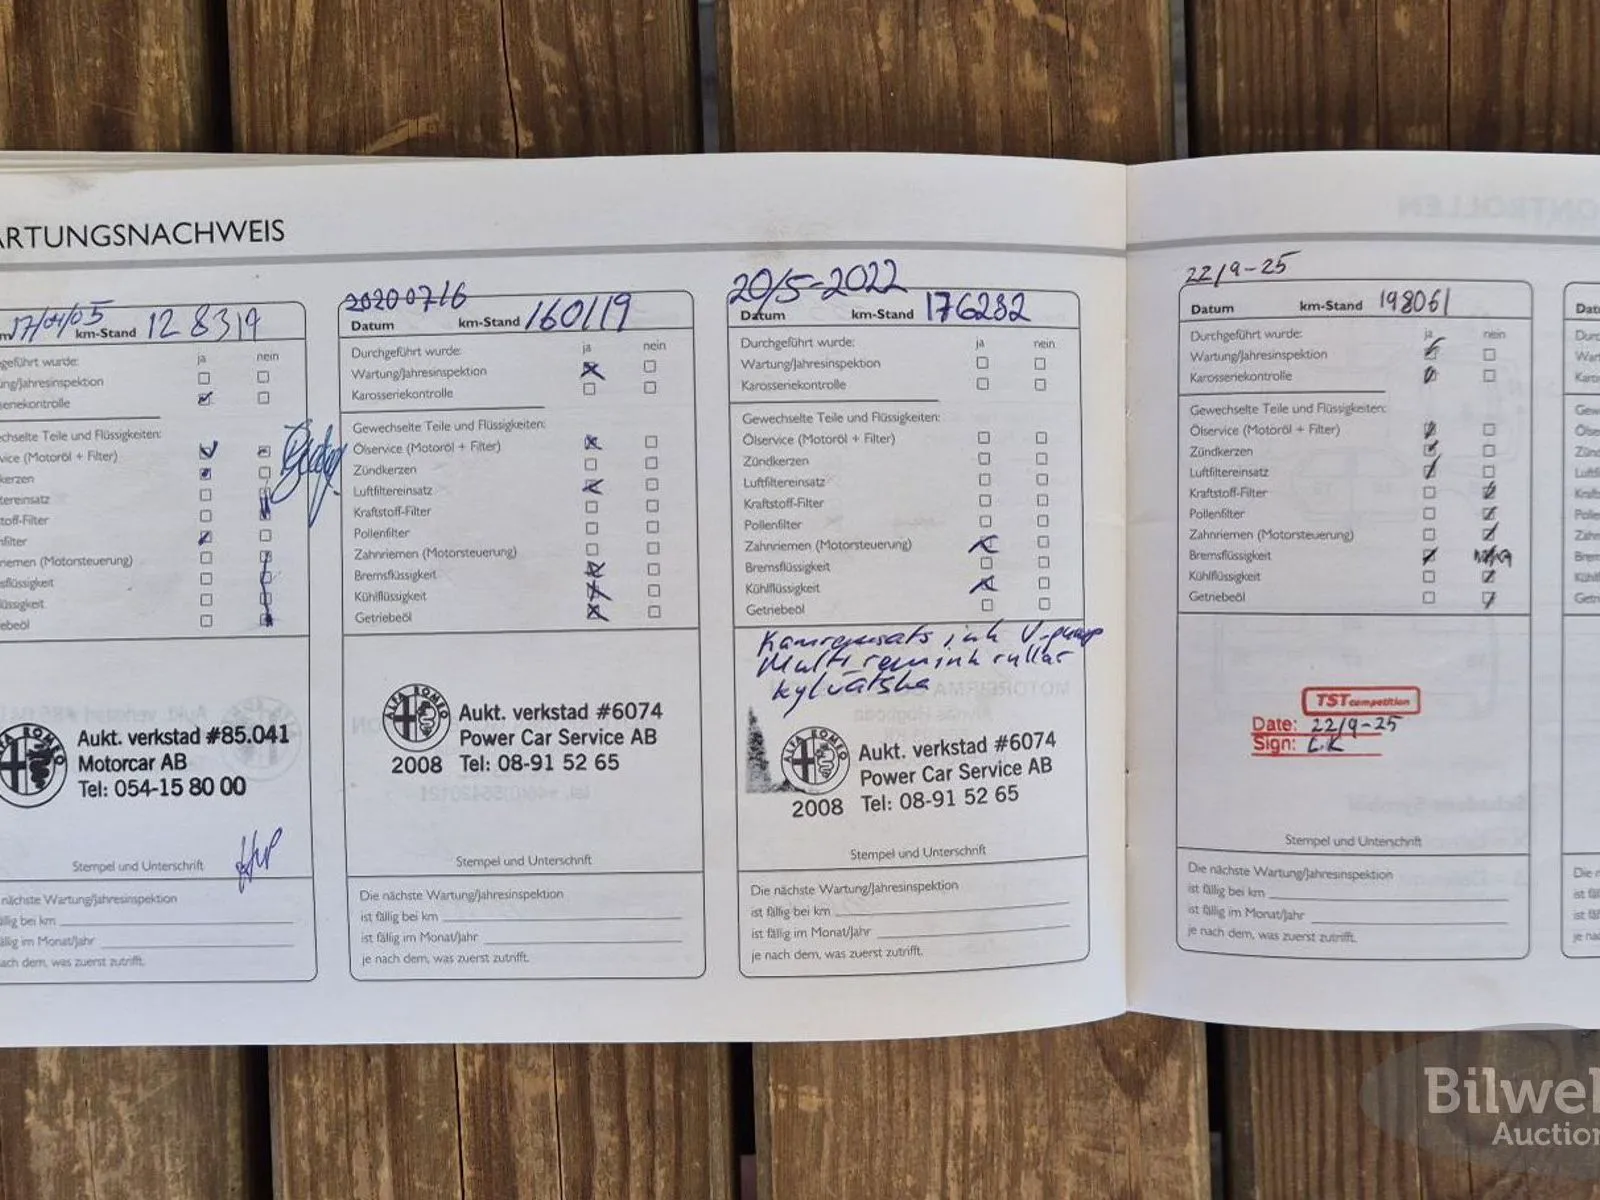 ARTUNGSNACHWEIS
17/04/05 km-Stand 128319
geführt wurde: ja nein
ng/Jahresinspektion
seriekontrolle
echselte Teile und Flüssigkeiten:
vice (Motoröl + Filter)
kerzen
tereinsatz
toff-Filter
nfilter
riemen (Motorsteuerung)
sflüssigkeit
üssigkeit
ebeöl
ALFA ROMEO
Aukt. verkstad #85.041
Motorcar AB
Tel: 054-15 80 00
Stempel und Unterschrift
nächste Wartung/Jahresinspektion
ällig bei km
ällig im Monat/Jahr
ach dem, was zuerst zutrifft.
20200716
Datum km-Stand 160119
Durchgeführt wurde: ja nein
Wartung/Jahresinspektion
Karosseriekontrolle
Gewechselte Teile und Flüssigkeiten:
Ölservice (Motoröl + Filter)
Zündkerzen
Luftfiltereinsatz
Kraftstoff-Filter
Pollenfilter
Zahnriemen (Motorsteuerung)
Bremsflüssigkeit
Kühlflüssigkeit
Getriebeöl
ALFA ROMEO
Aukt. verkstad #6074
Power Car Service AB
2008 Tel: 08-91 52 65
Stempel und Unterschrift
Die nächste Wartung/Jahresinspektion
ist fällig bei km
ist fällig im Monat/Jahr
je nach dem, was zuerst zutrifft.
20/5-2022
Datum km-Stand 176282
Durchgeführt wurde: ja nein
Wartung/Jahresinspektion
Karosseriekontrolle
Gewechselte Teile und Flüssigkeiten:
Ölservice (Motoröl + Filter)
Zündkerzen
Luftfiltereinsatz
Kraftstoff-Filter
Pollenfilter
Zahnriemen (Motorsteuerung)
Bremsflüssigkeit
Kühlflüssigkeit
Getriebeöl
Kamremsats ink V-pump
Multirem ink rullar
kylvätska
ALFA ROMEO
Aukt. verkstad #6074
Power Car Service AB
2008 Tel: 08-91 52 65
Stempel und Unterschrift
Die nächste Wartung/Jahresinspektion
ist fällig bei km
ist fällig im Monat/Jahr
je nach dem, was zuerst zutrifft.
22/9-25
Datum km-Stand 198061
Durchgeführt wurde: ja nein
Wartung/Jahresinspektion
Karosseriekontrolle
Gewechselte Teile und Flüssigkeiten:
Ölservice (Motoröl + Filter)
Zündkerzen
Luftfiltereinsatz
Kraftstoff-Filter
Pollenfilter
Zahnriemen (Motorsteuerung)
Bremsflüssigkeit
Kühlflüssigkeit
Getriebeöl
TST competition
Date: 22/9-25
Sign: L.K
Stempel und Unterschrift
Die nächste Wartung/Jahresinspektion
ist fällig bei km
ist fällig im Monat/Jahr
je nach dem, was zuerst zutrifft.
Bilwe
Auction